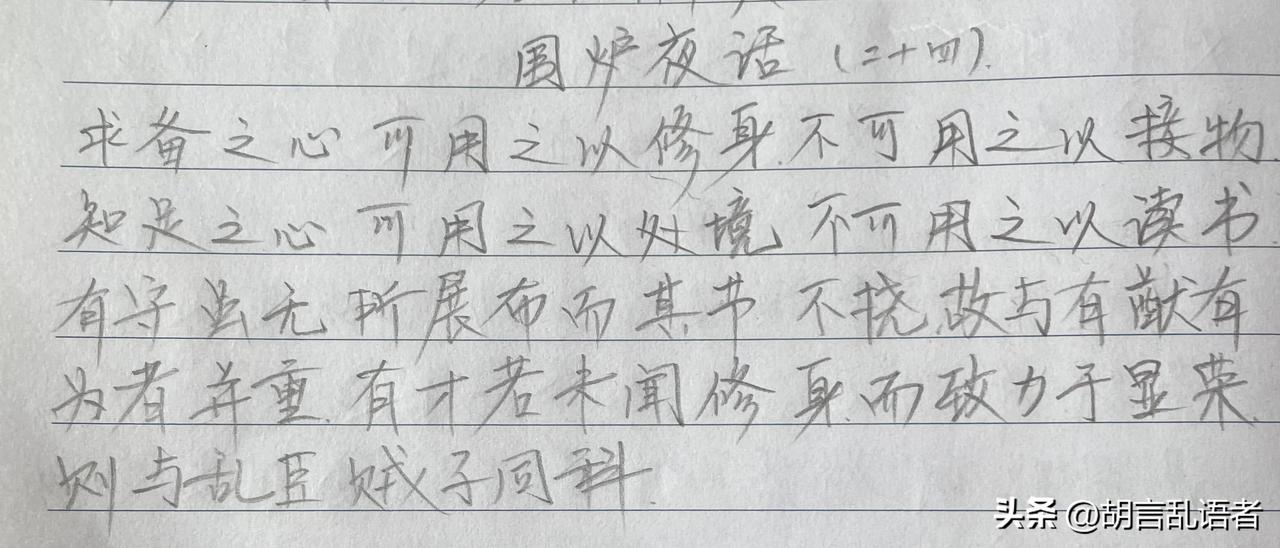 围炉夜话（二十四）.
求备之心可用之以修身.不可用之以接物.
知足之心可用之以处境,不可用之以读书.
有守虽无所展布而其节不挠,故与有猷有
为者并重.有才若未闻修身.而致力于显荣.
则与乱臣贼子同科.
头条 @胡言乱语者